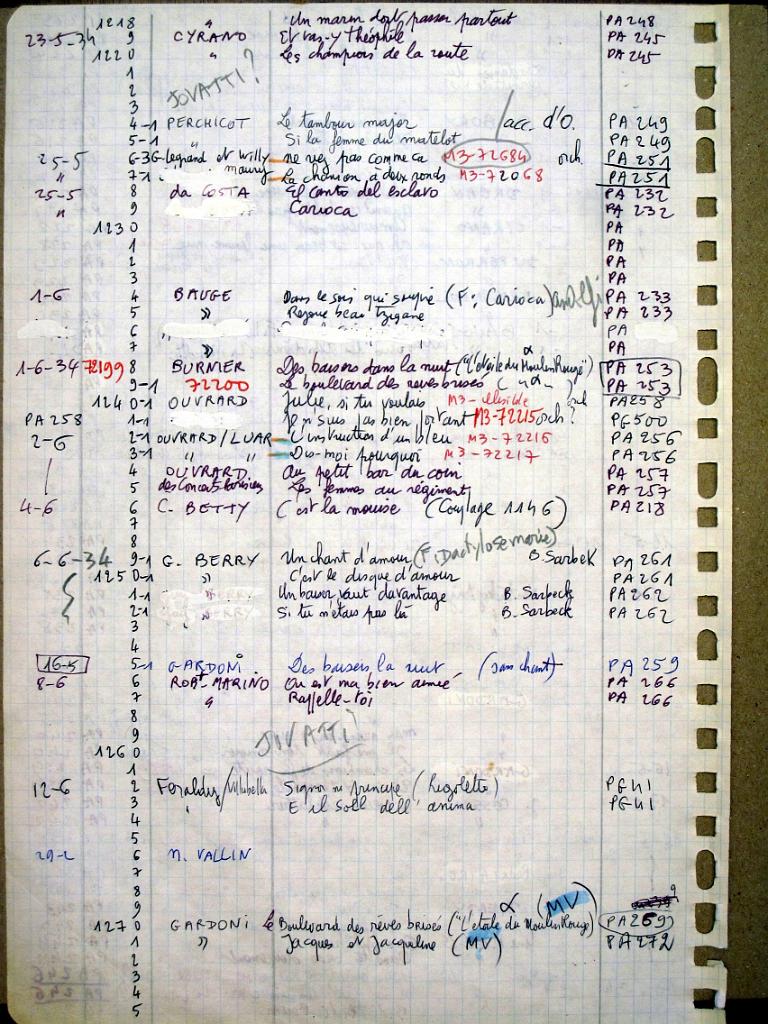 1218 " Un marin doit passer partout PA 248
23-5-34 9 CYRANO Et vas-y Théophile PA 245
1220 " Les champions de la route PA 245
1
2 JOVATTI?
3
4-1 PERCHICOT Le tambour major acc. d'O. PA 249
5-1 " Si la femme du matelot PA 249
25-5 6-3 G. Legrand et Willy ne vrez pas comme ca M3-72684 orch. PA 251
" 7-1 " maury La chanson à deux ronds M3-72068 PA 251
25-5 8 da COSTA El canto del esclavo PA 232
" 9 Carioca PA 232
1230 PA
1 PA
2 PA
3 PA
1-6 4 BAUGE Dans le soir qui soupire (F: Carioca) PA 233
5 " Rejoue beau tzigane PA 233
6 " PA
7 " PA
1-6-34 72199 8 BURNIER Des baisers dans la nuit ("L'étoile du Moulin Rouge") PA 253
9-1 72200 Le boulevard des rêves brisés ( " ) PA 253
1240-1 OUVRARD Julie, si tu voulais M3-illisible orch ? PA 258
PA 258 1-1 Je n'suis pas bien portant M3-72215 orch? PG 500
2-6 2-1 OUVRARD/LUAR L'instruction d'un bleu M3-72216 PA 256
3-1 " " Dis-moi pourquoi M3-72217 PA 256
4 OUVRARD Au petit bar du coin PA 257
5 des Concerts Parisiens Les femmes au régiment PA 257
4-6 6 C. BETTY C'est la mouise (Couplage 1146) PA 218
7
8
6-6-34 9-1 G. BERRY Un chant d'amour (F, Dactylo se marie) B. Sarbek PA 261
1250-1 " C'est le disque d'amour PA 261
1-1 " Un baiser vaut davantage B. Sarbeck PA 262
2-1 " Si tu n'étais pas là B. Sarbeck PA 262
3
4
16-5 5-1 GARDONI Des baisers la nuit (sans chant) PA 259
8-6 6 ROBt MARINO Où est ma bien aimée PA 266
7 " Rappelle-toi PA 266
8
9 JOVATTI?
1260
1
12-6 2 Feraldy/Villabella Signor ni principe (Rigoletto) PG 41
3 " E il sol dell'anima PG 41
4
5
29-2 6 N. VALLIN
7
8
9
1270 GARDONI Le Boulevard des rêves brisés ("L'étoile du Moulin Rouge) (MV) PA 259
1 " Jacques et Jacqueline (MV) PA 272
2
3
4
5